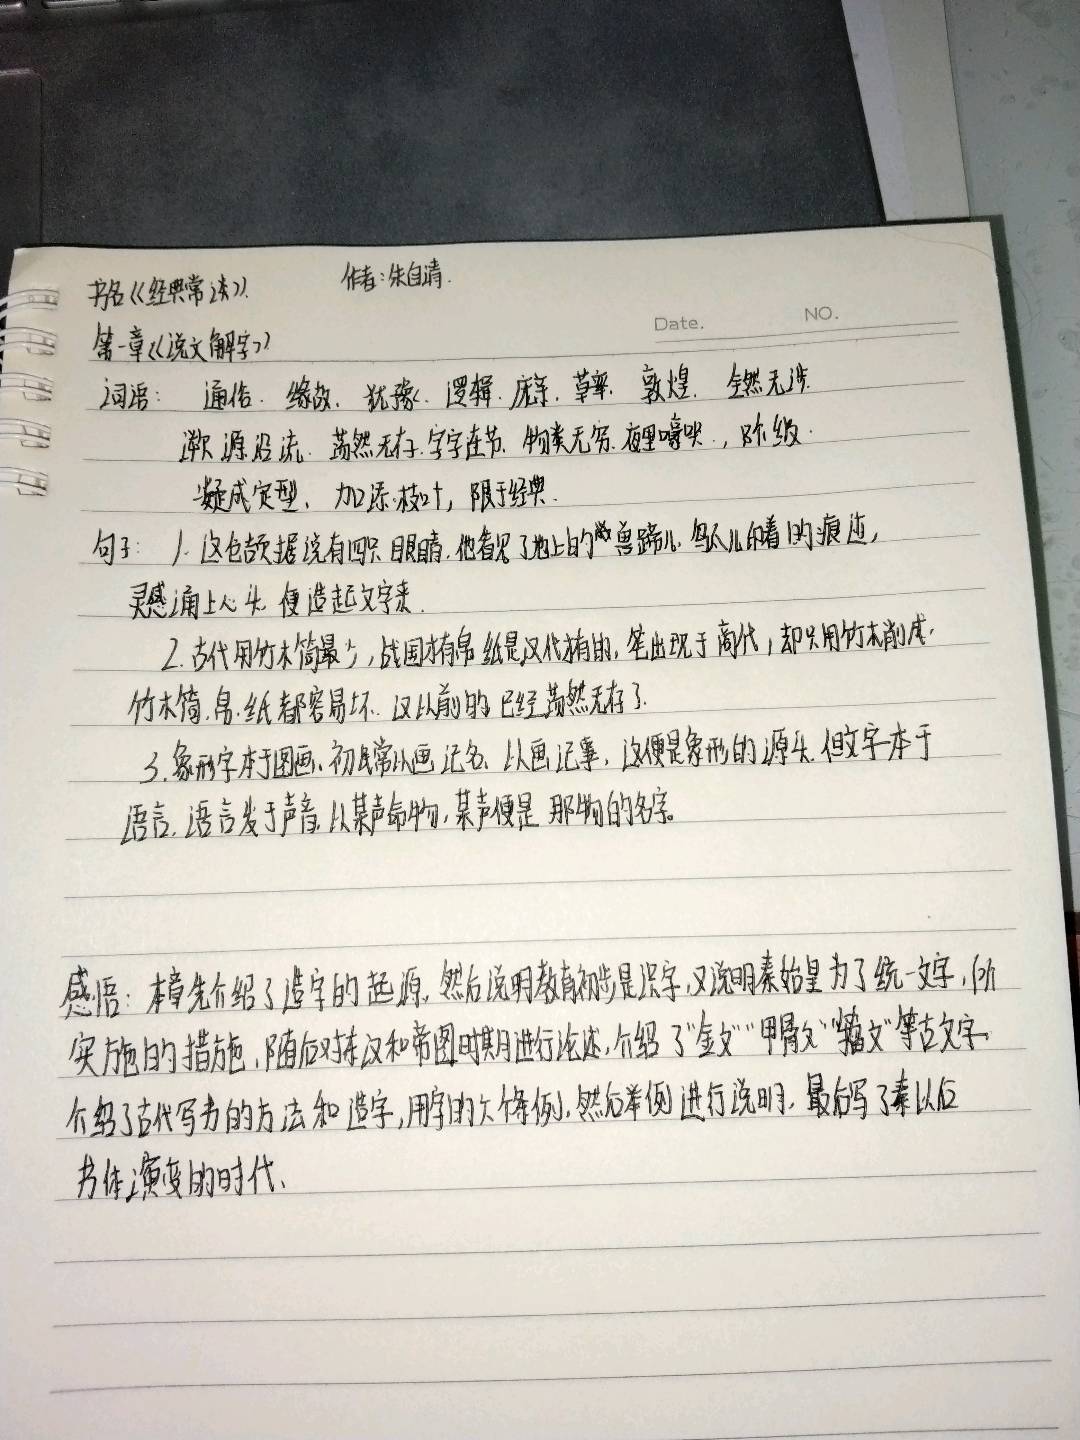 书名《经典常谈》. 作者:朱自清.
Date. NO.
第一章《说文解字》
词语: 通俗. 缘故. 犹豫. 逻辑. 庶. 草率. 敦煌. 全然无涉.
溯源沿流. 荡然无存. 字字连节. 物类无穷. 夜里啼哭., 阶级.
凝成定型、加添枝叶, 限于经典.
句子: 1. 这仓颉据说有四只眼睛. 他看见了地上的兽蹄儿. 鸟爪儿印着的痕迹,
灵感涌上心头. 便造起文字来.
2. 古代用竹木简最多, 战国才有帛. 纸是汉代才有的, 笔出现于商代, 却只用竹木削成.
竹木简. 帛. 纸都容易坏. 汉以前的已经荡然无存了.
3. 象形字本于图画、初民常以画记名. 以画记事, 这便是象形的源头. 但文字本于
语言, 语言发于声音, 以某声命物, 某声便是那物的名字。
感悟: 本章先介绍了造字的起源, 然后说明教育初步是识字, 又说明秦始皇为了统一文字, 所
实施的措施, 随后对东汉和帝图时期进行论述, 介绍了“金文”“甲骨文”“籀文”等古文字.
介绍了古代写书的方法和造字, 用字的六个条例. 然后举例进行说明. 最后写了秦以后
书体演变的时代、